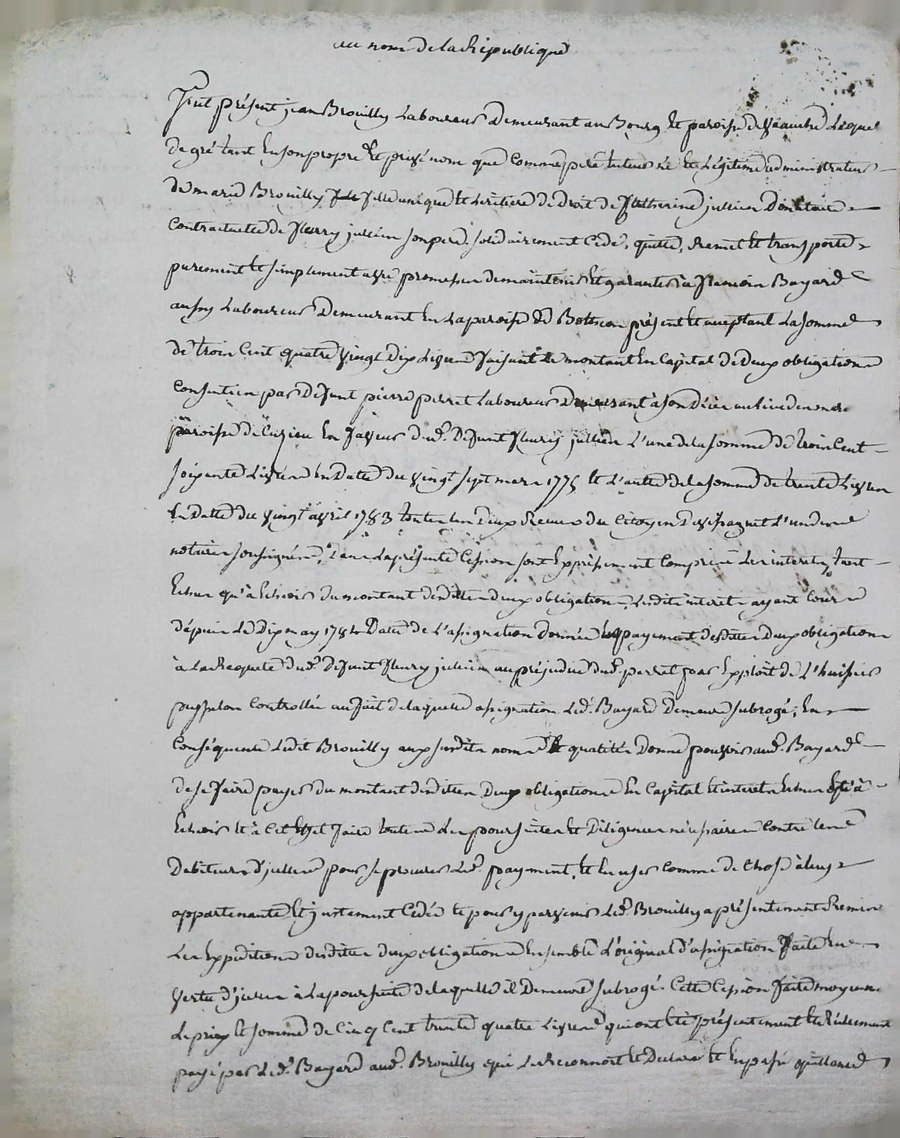 au nom de la République
Fut présent jean Brouilly Laboureur demeurant au Bourg et paroisse de Lequel
de gré tant en son propre et privé nom que comme pere tuteur né et Légitime administrateur
de marie Brouilly fille unique et heritiere de droit de Katherine jullien donataire
contractuele de fleury jullien son pere solidairement Cede, quitte, Remet et transporte
purement et simplement avec promesse de maintenir et garantir à françois Bayard
aussy Laboureur Demeurant En La paroisse de présent et acceptant La somme
de trois Cent quatre vingt dix Livres faisant le montant En Capital de deux obligations
Consenties par défunt pierre perret Laboureur Demeurant à son décès au lieu de
paroisse de Cuzieu En faveur dud. Défunt fleury jullien L'une de la somme de trois Cent
soixante Livres En Date du vingt sept mars 1775 et L'autre de la somme de trente Livres
En Date du vingt avril 1783 toutes les deux Reçues du Citoyen L'un des
notaires soussignés, dans La présente Cession sont Expressement Compris Les interets, tant
Echus qu'à Echoir du montant desdittes deux obligations, Lesdits interets ayant Cours
depuis Le Dix may 1784 Date de L'assignation donnée En payement desdittes deux obligations
à La Requete dud. défunt fleury jullien au préjudice dud. perret par Exploit de L'huissier
Controllé au fait de laquelle assignation Led. Bayard Demeure subrogé; En
Conséquence Ledit Brouilly aux susdits noms et qualités donne pouvoir aud. Bayard
de se faire payer du montant desdittes Deux obligations En Capital et interets Echus et à
Echoir et à Cet Effet faire toutes Les poursuites et Diligences nécessaires Contre Les
Débiteurs d'jcelles pour se procurer Led. payement, et En user Comme de Chose à luy
appartenante et justement Cédée et pour y parvenir Led. Brouilly a présentement Remis
Les Expéditions desdittes deux obligations Ensemble L'original d'assignation faite En
vertu d'jcelles à La poursuite de laquelle il Demeure subrogé. Cette Cession faite moyennant
Le prix et somme de Cinq Cent trente quatre Livres qui ont été présentement et Réellement
payé par Led. Bayard aud. Brouilly qui Le Reconnoit et Declare et En passe quittance